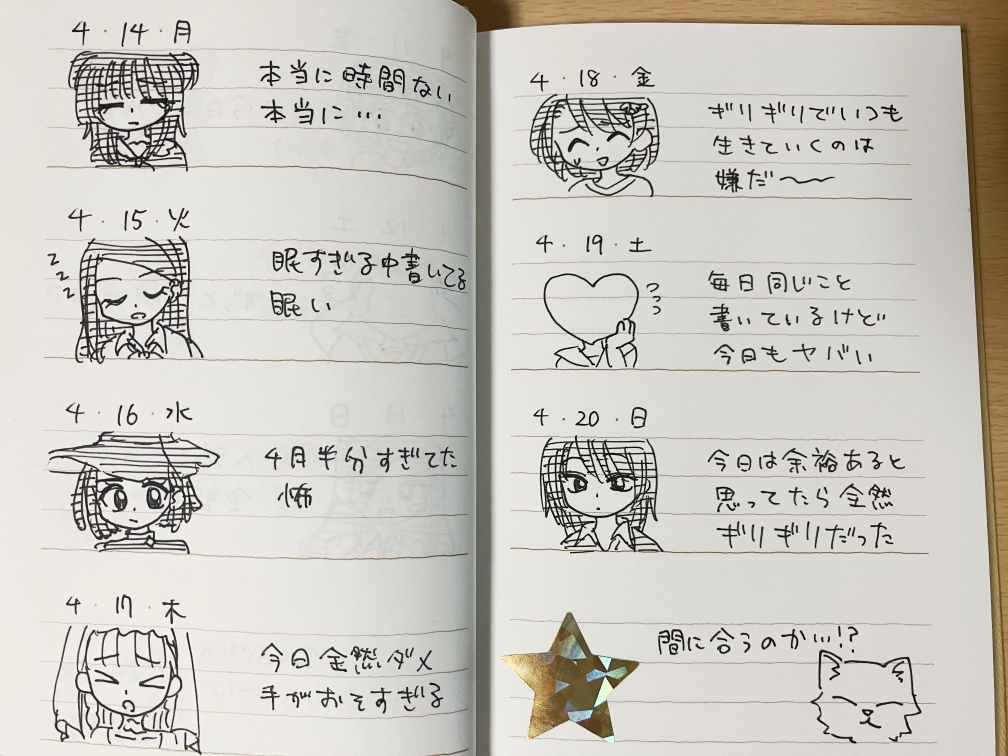 4・14・月
本当に時間ない
本当に…
4・15・火
z z z
眠すぎる中書いてる
眠い
4・16・水
4月半分すぎてた
怖
4・17・木
今日全然ダメ
手がおそすぎる
4・18・金
ギリギリでいつも
生きていくのは
嫌だ〜〜
4・19・土
っっっ
毎日同じこと
書いているけど
今日もヤバい
4・20・日
今日は余裕あると
思ってたら全然
ギリギリだった
間に合うのか…!?